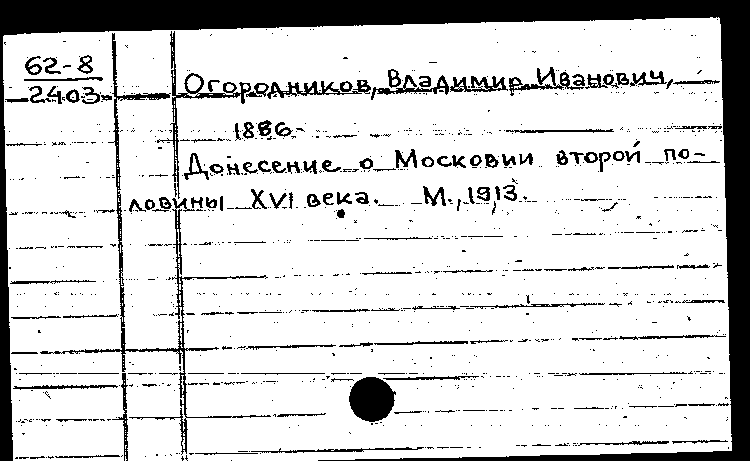 62-8
2403
Огородников, Владимир Иванович,
1886-
Донесение о Московии второй по-
ловины XVI века. М., 1913.